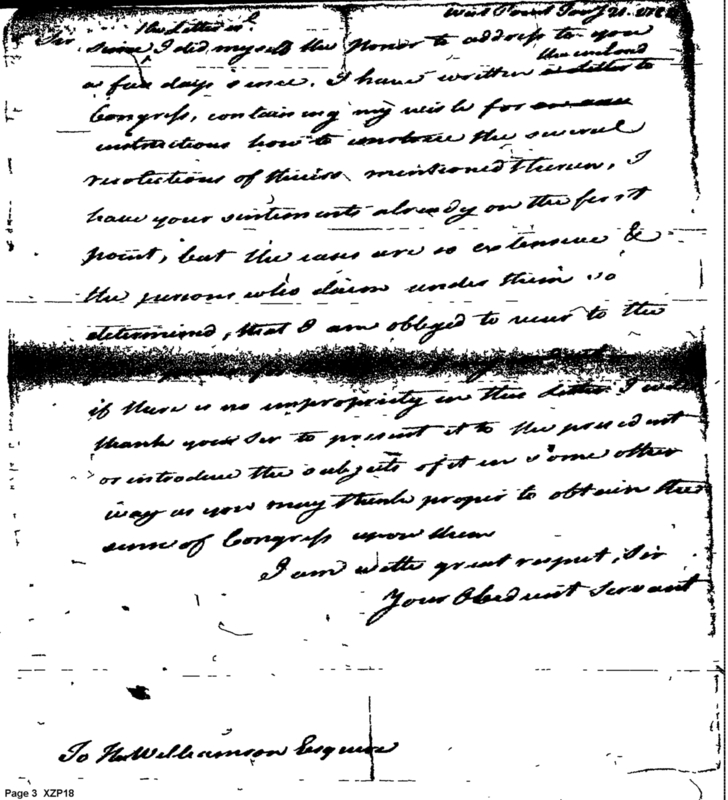 the Letter
West Point
Sir, Since I did myself the honor to address to you
the enclosed
a few days since. I have written a letter to
Congress, containing my wish for
instructions how to the several
resolutions of theirs mentioned therein, I
have your sentiments already on the first
point, but the cases are so extensive &
the persons who claim under them so
determined, that I am obliged to recur to the
if there is no impropriety in this Letter I will
thank you Sir to present it to the president
or introduce the subjects of it in some other
way as you may think proper to obtain the
sense of Congress upon them
I am with great respect, Sir
Your Obedient Servant
To Hu Williamson Esquire
Page 3 XZP18